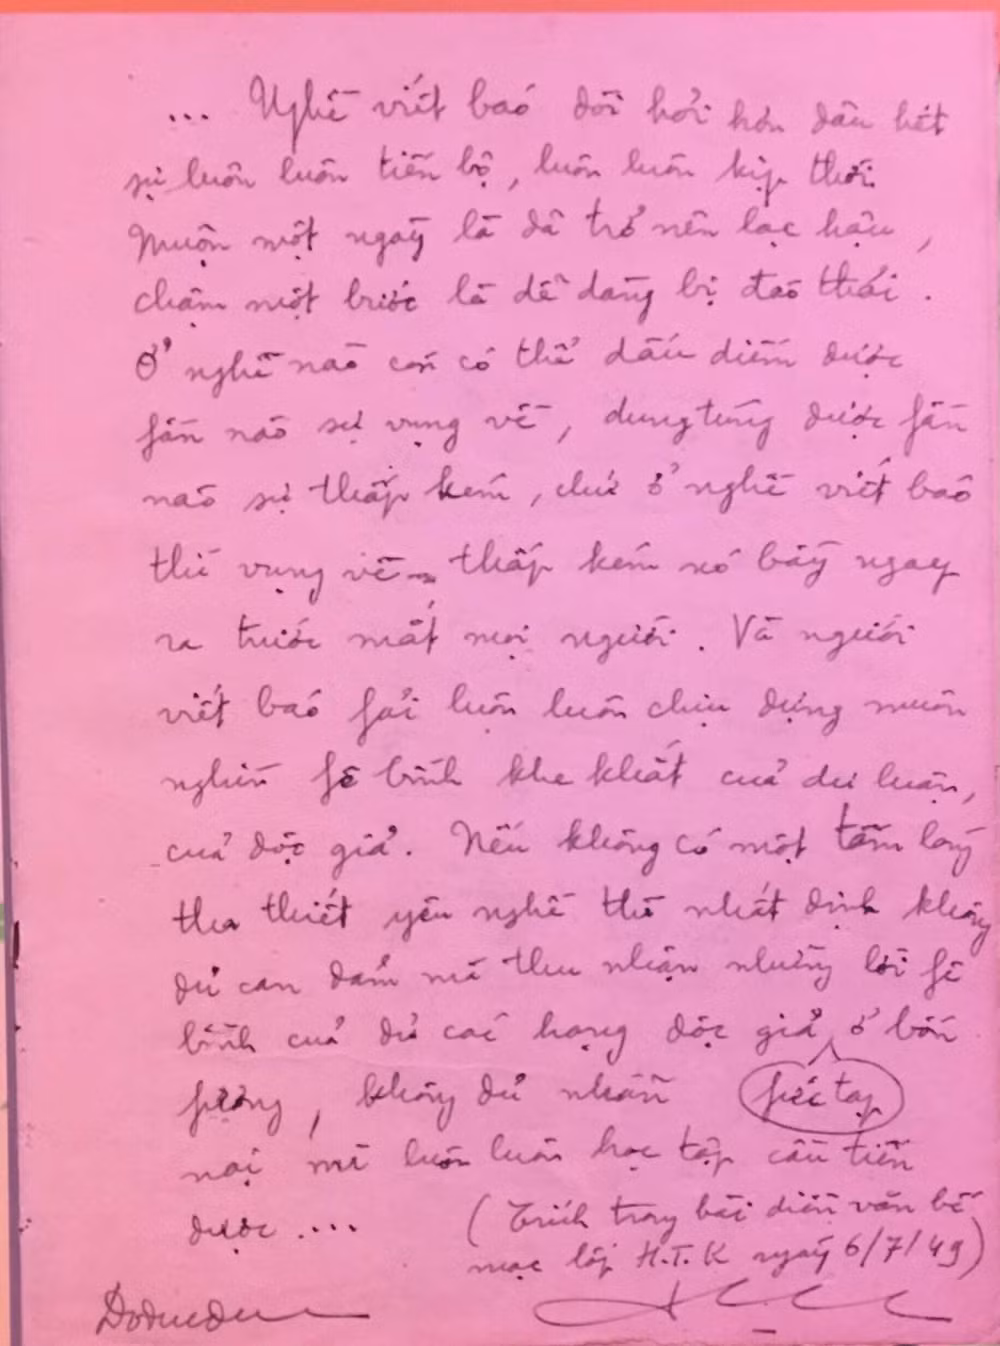 ... Nghề viết báo đòi hỏi hơn đâu hết
sự luôn luôn tiến bộ, luôn luôn kịp thời.
Muộn một ngày là đã trở nên lạc hậu,
chậm một bước là dễ dàng bị đào thải.
Ở nghề nào còn có thể dấu diếm được
fần nào sự vụng về, dung túng được fần
nào sự thấp kém, chứ ở nghề viết báo
thì vụng về thấp kém nó bầy ngay
ra trước mắt mọi người. Và người
viết báo fải luôn luôn chịu đựng muôn
nghìn fê bình khe khắt của dư luận,
của độc giả. Nếu không có một tấm lòng
tha thiết yêu nghề thì nhất định không
đủ can đảm mà thu nhận những lời fê
bình của đủ các hạng độc giả ở bốn
fương, không đủ nhẫn fức tạp
nại mà luôn luôn học tập cầu tiến
được ....
(Trích trong bài diễn văn bế
mạc lớp H.T.K ngày 6/7/49)